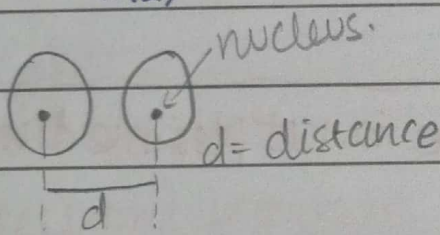 nucleus.
d= distance
d